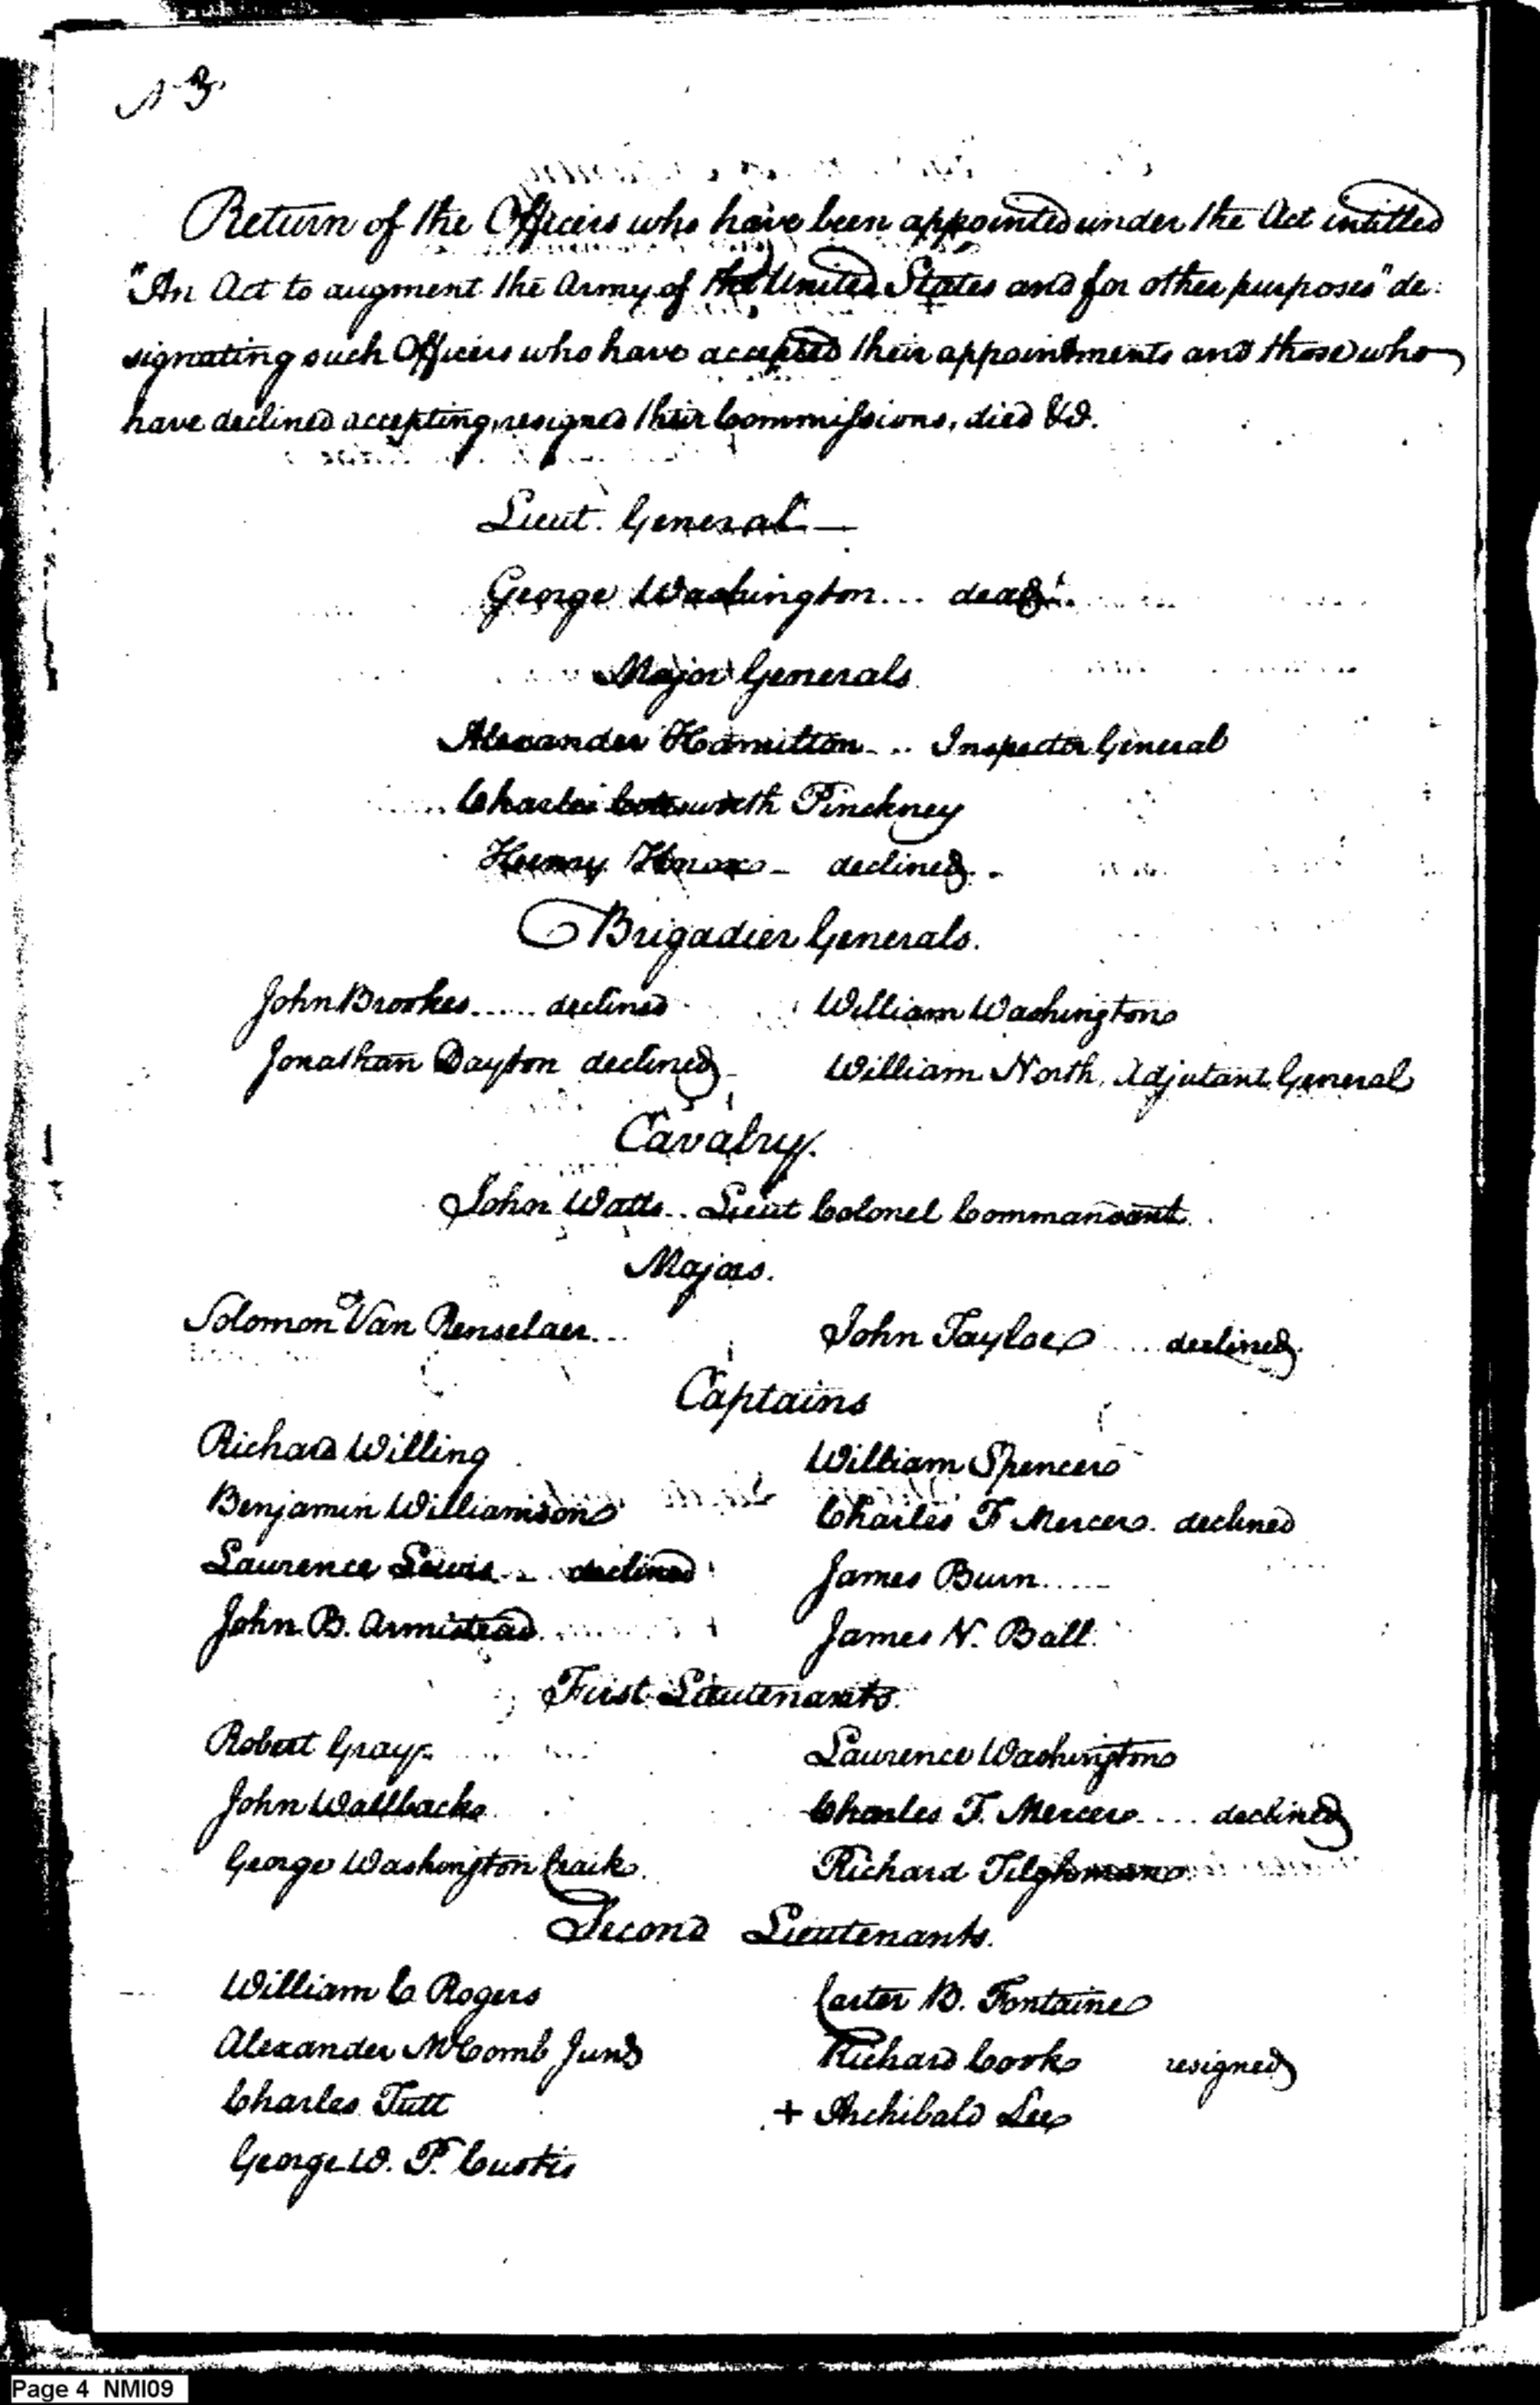 N 3.
Return of the Officers who have been appointed under the Act intitled
"An Act to augment the Army of the United States and for other purposes" de-
signating such Officers who have accepted their appointments and those who
have declined accepting, resigned their Commissions, died &c.
Lieut. General —
George Washington... dead.
Major Generals
Alexander Hamilton... Inspector General
Charles Cotesworth Pinckney
Henry Knox - declined.
Brigadier Generals.
John Brookes...... declined William Washington
Jonathan Dayton declined William North, Adjutant General
Cavalry.
John Watts.. Lieut Colonel Commandant.
Majors.
Solomon Van Renselaer... John Tayloe .... declined.
Captains
Richard Willing William Spencer
Benjamin Williamson Charles F Mercer. declined
Laurence Lewis... declined James Burn.....
John B. Armistead James N. Ball.
First Lieutenants.
Robert Gray. Laurence Washington
John Wallback. Charles F. Mercer.... declined
George Washington Craik. Richard Tilghman.
Second Lieutenants.
William C Rogers Carter B. Fontaine
Alexander McComb Junr Richard Cook resigned
Charles Tutt + Archibald Lee
George W. P. Custis
Page 4 NMI09